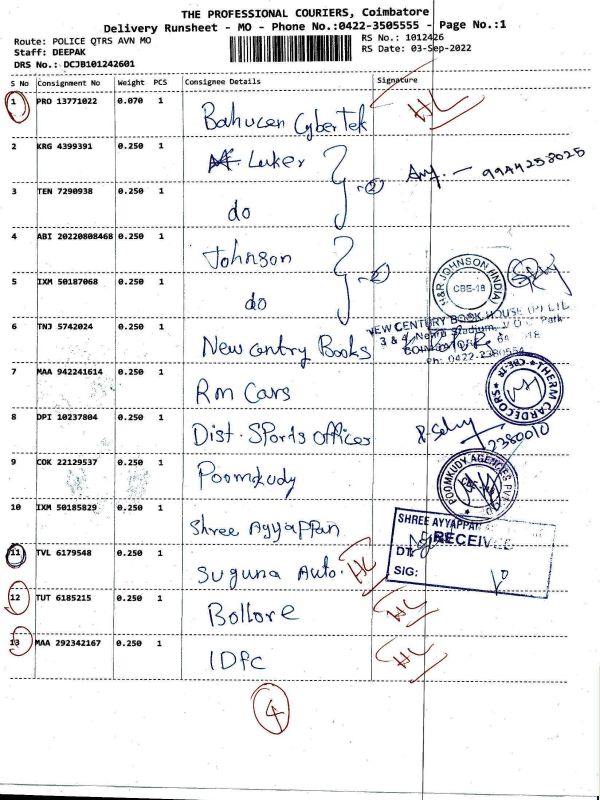 THE PROFESSIONAL COURIERS, Coimbatore
Delivery Runsheet - MO - Phone No.:0422-3505555 - Page No.:1
Route: POLICE QTRS AVN MO
RS No.: 1012426
Staff: DEEPAK
RS Date: 03-Sep-2022
DRS No.: DCJB101242601
S No Consignment No Weight PCS Consignee Details Signature
1 PRO 13771022 0.070 1 Bahucen Cybertek HL
2 KRG 4399391 0.250 1 Luker 2 9944258025
3 TEN 7290938 0.250 1 do
4 ABI 20220808468 0.250 1 Johnson 2
H&R JOHNSON (INDIA)
CBE-18
5 IXM 50187068 0.250 1 do
6 TNJ 5742024 0.250 1 New centry Books
NEW CENTURY BOOK HOUSE (P) LTD.
3 & 4, Nehru Stadium, V O C Park
COIMBATORE 64 018
Ph: 0422-2380554
7 MAA 942241614 0.250 1 Rm Cars
THERM CARDECORS CBE-18
8 DPI 10237804 0.250 1 Dist. Sports offices
2380010
9 COK 22129537 0.250 1 Poomkudy
POOMKUDY AGENCIES PVT. LTD
CBE-18
10 IXM 50185829 0.250 1 Shree Ayyappan
SHREE AYYAPPAN
RECEIVED
DT:
SIG:
11 TVL 6179548 0.250 1 Suguna Auto. HL
12 TUT 6185215 0.250 1 Bollore HL
13 MAA 292342167 0.250 1 IDFC HL
4